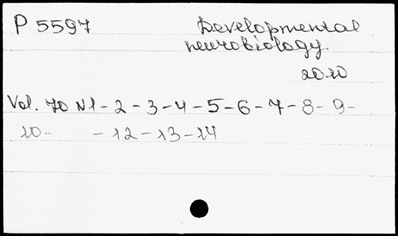 P 5597 Developmental
neurobiology.
2010
Vol. 70 N1-2-3-4-5-6-7-8-9-
10- -12-13-14